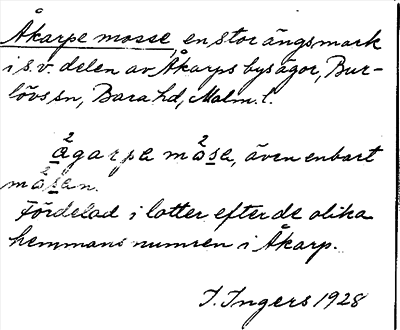 Åkarpe mosse, en stor ängsmark
i s.v. delen av Åkarps bys ägor, Bur-
lövs sn, Bara hd, Malm. l.
ågarpa måsa, även enbart
måsen.
Fördelad i lotter efter de olika
hemmans numren i Åkarp.
I. Ingers 1928